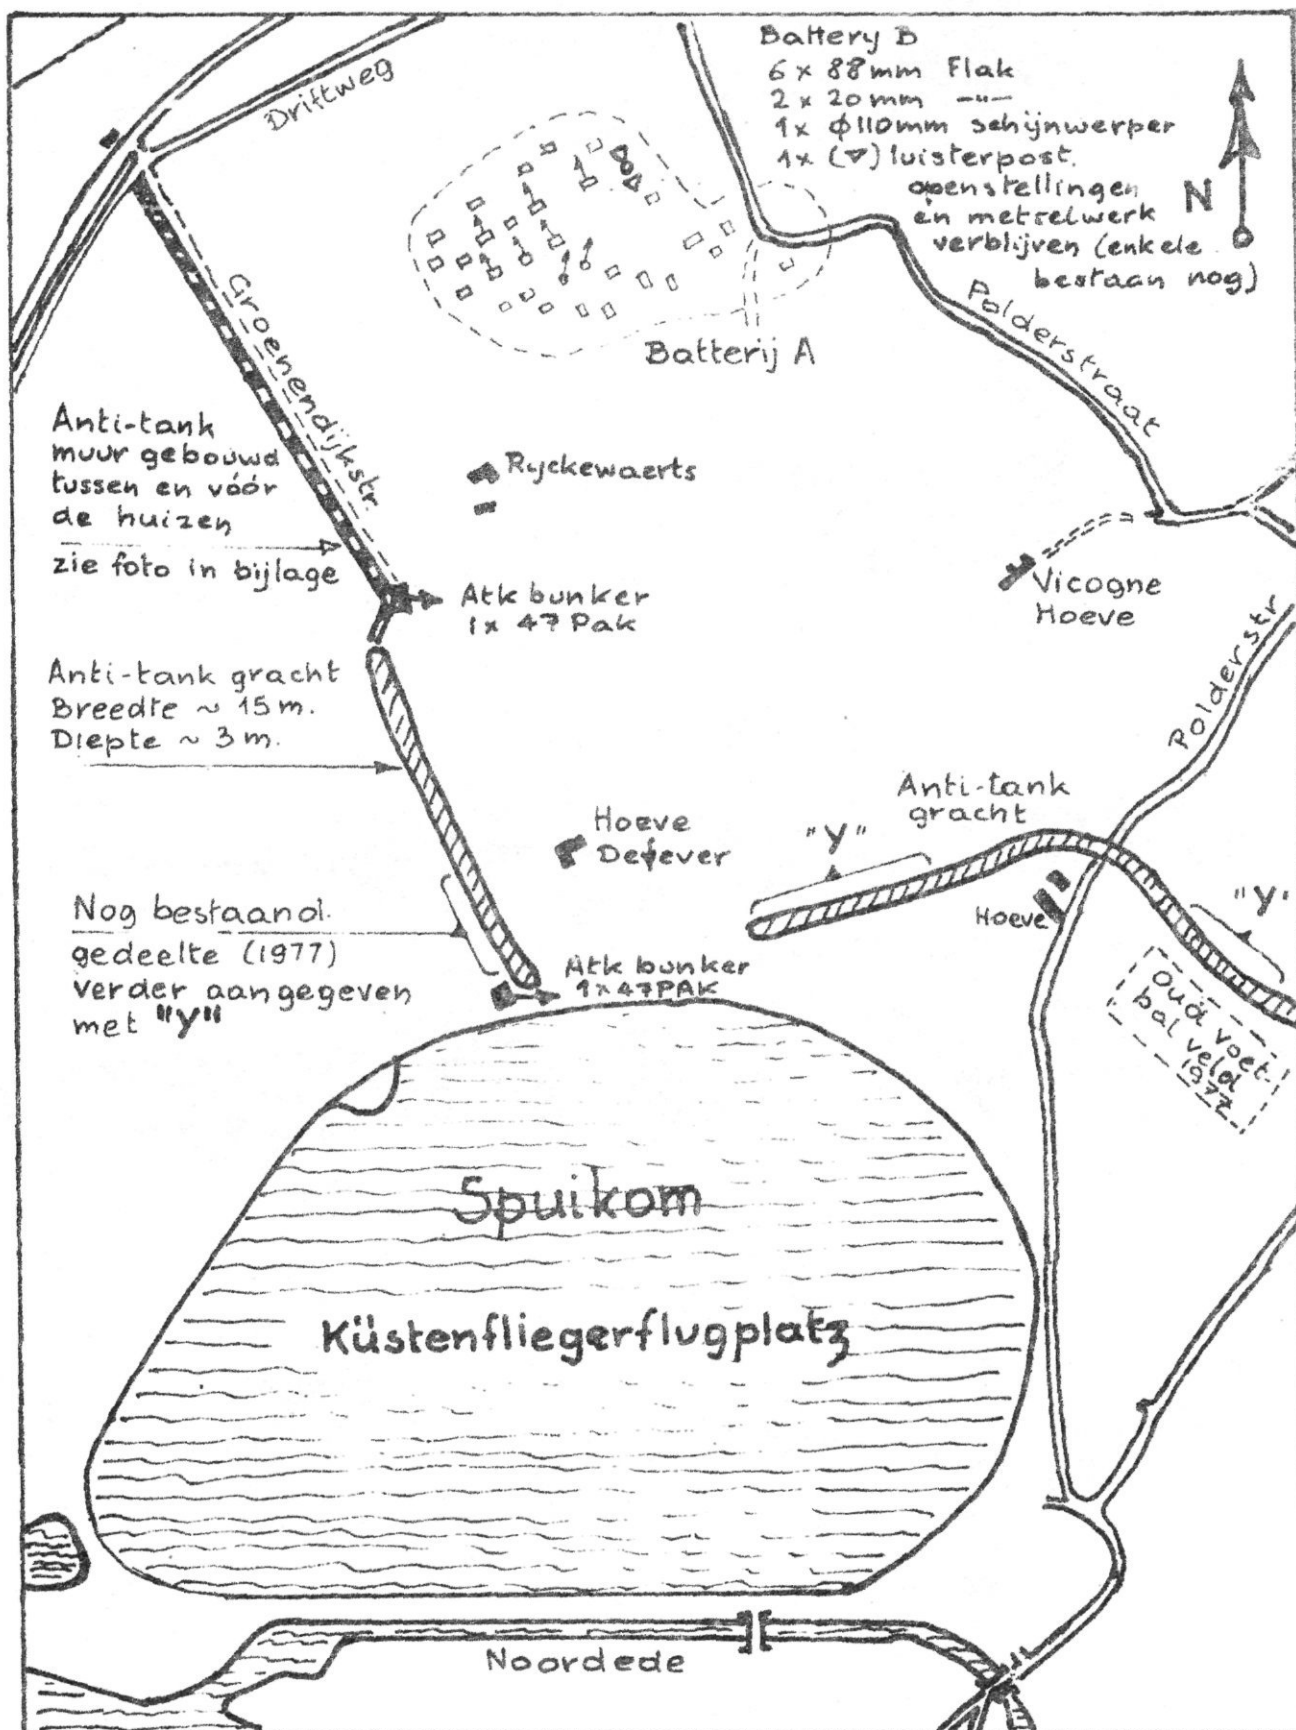 Driftweg
Battery B
6 x 88mm Flak
2 x 20mm -"-
1x ϕ110mm schijnwerper
1x (▽) luisterpost.
openstellingen
en metselwerk
verblijven (enkele
bestaan nog)
N
Groenendijkstr.
Batterij A
Polderstraat
Anti-tank
muur gebouwd
tussen en vóór
de huizen
zie foto in bijlage
Ryckewaerts
Atk bunker
1x 47 Pak
Vicogne
Hoeve
Polderstr
Anti-tank gracht
Breedte ~ 15 m.
Diepte ~ 3 m.
Hoeve
Defever
Anti-tank
gracht
"Y"
"Y"
Hoeve
Nog bestaand.
gedeelte (1977)
verder aangegeven
met "Y"
Atk bunker
1x47PAK
Oud voet-
bal veld
1977
Spuikom
Küstenfliegerflugplatz
Noordede